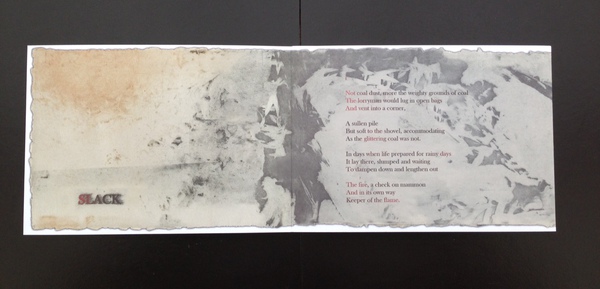 SLACK
Not coal dust, more the weighty grounds of coal
The lorryman would lug in open bags
And vent into a corner,
A sullen pile
But soft to the shovel, accommodating
As the glittering coal was not.
In days when life prepared for rainy days
It lay there, slumped and waiting
To dampen down and lengthen out
The fire, a check on mammon
And in its own way
Keeper of the flame.